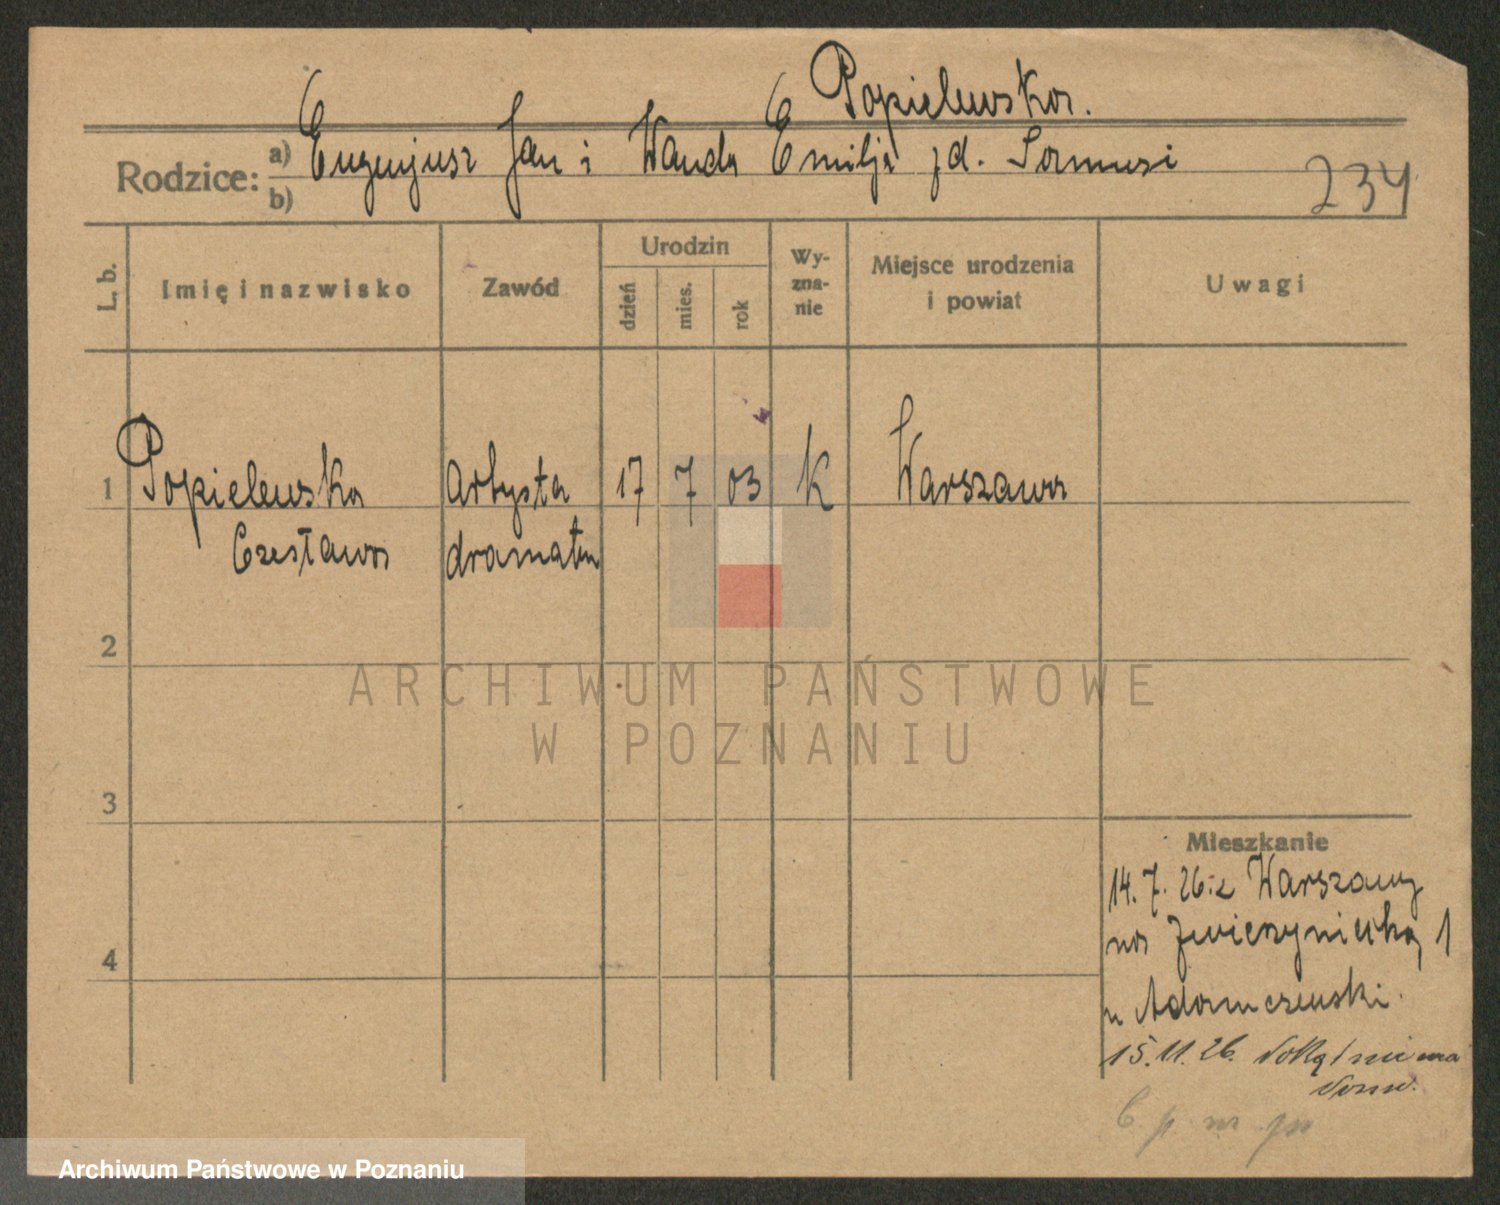 Popielewska.
Rodzice: a) Eugenjusz Jan i Wanda Emilja zd.
b)
234
L. b.
Imię i nazwisko
Zawód
Urodzin
dzień
mies.
rok
Wy-
zna-
nie
Miejsce urodzenia
i powiat
Uwagi
1 Popielewska Artysta 17 7 03 k Warszawa
Czesława dramatu
2
3
4
Mieszkanie
14. 7. 26. z Warszawy
na Zwierzyniecką 1
u Adamczewski.
15. 11. 26. dokąd nie
ARCHIWUM PAŃSTWOWE
W POZNANIU
Archiwum Państwowe w Poznaniu